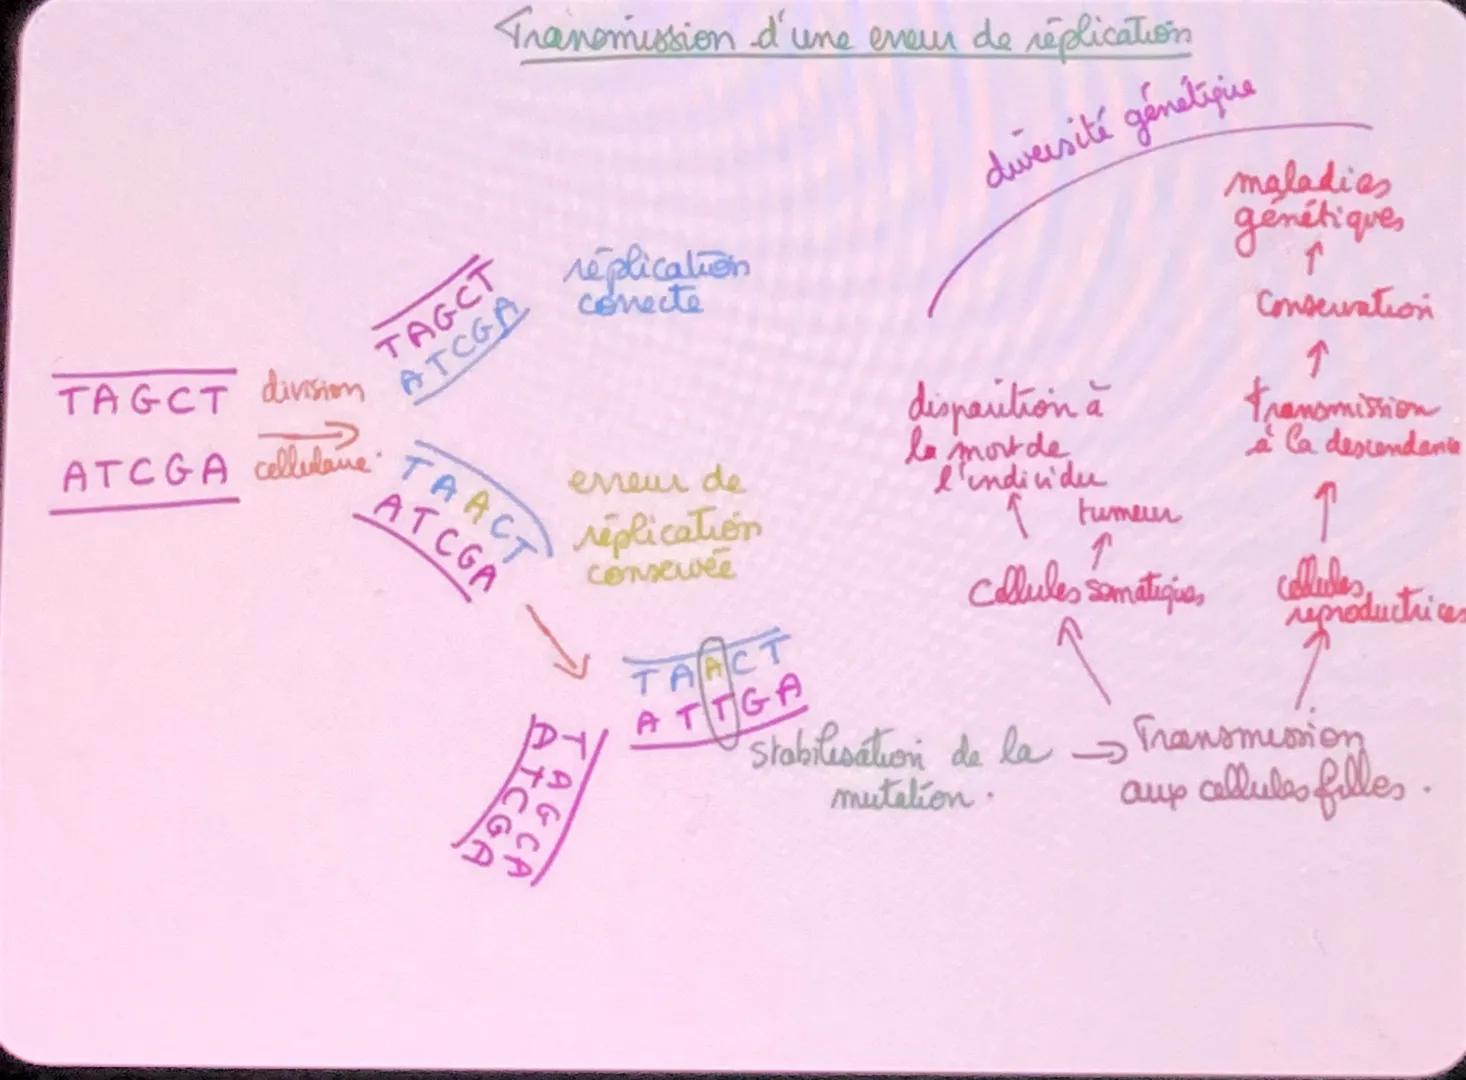 Transmission d'une erreur de réplication
diversité génétique
maladies
génétiques
conservation
transmission
à la descendance
cellules
reproductrices
disparition à
la mort de
l'individu
tumeur
cellules somatiques
réplication
correcte
TAGCT
ATCGA
TAGCT
ATCGA
division
cellulaire.
TAACT
ATCGA
erreur de
réplication
conservée
TAACT
ATTGA
TAGCA
ATCGA
Stabilisation de la
mutation.
Transmission
aux cellules filles.